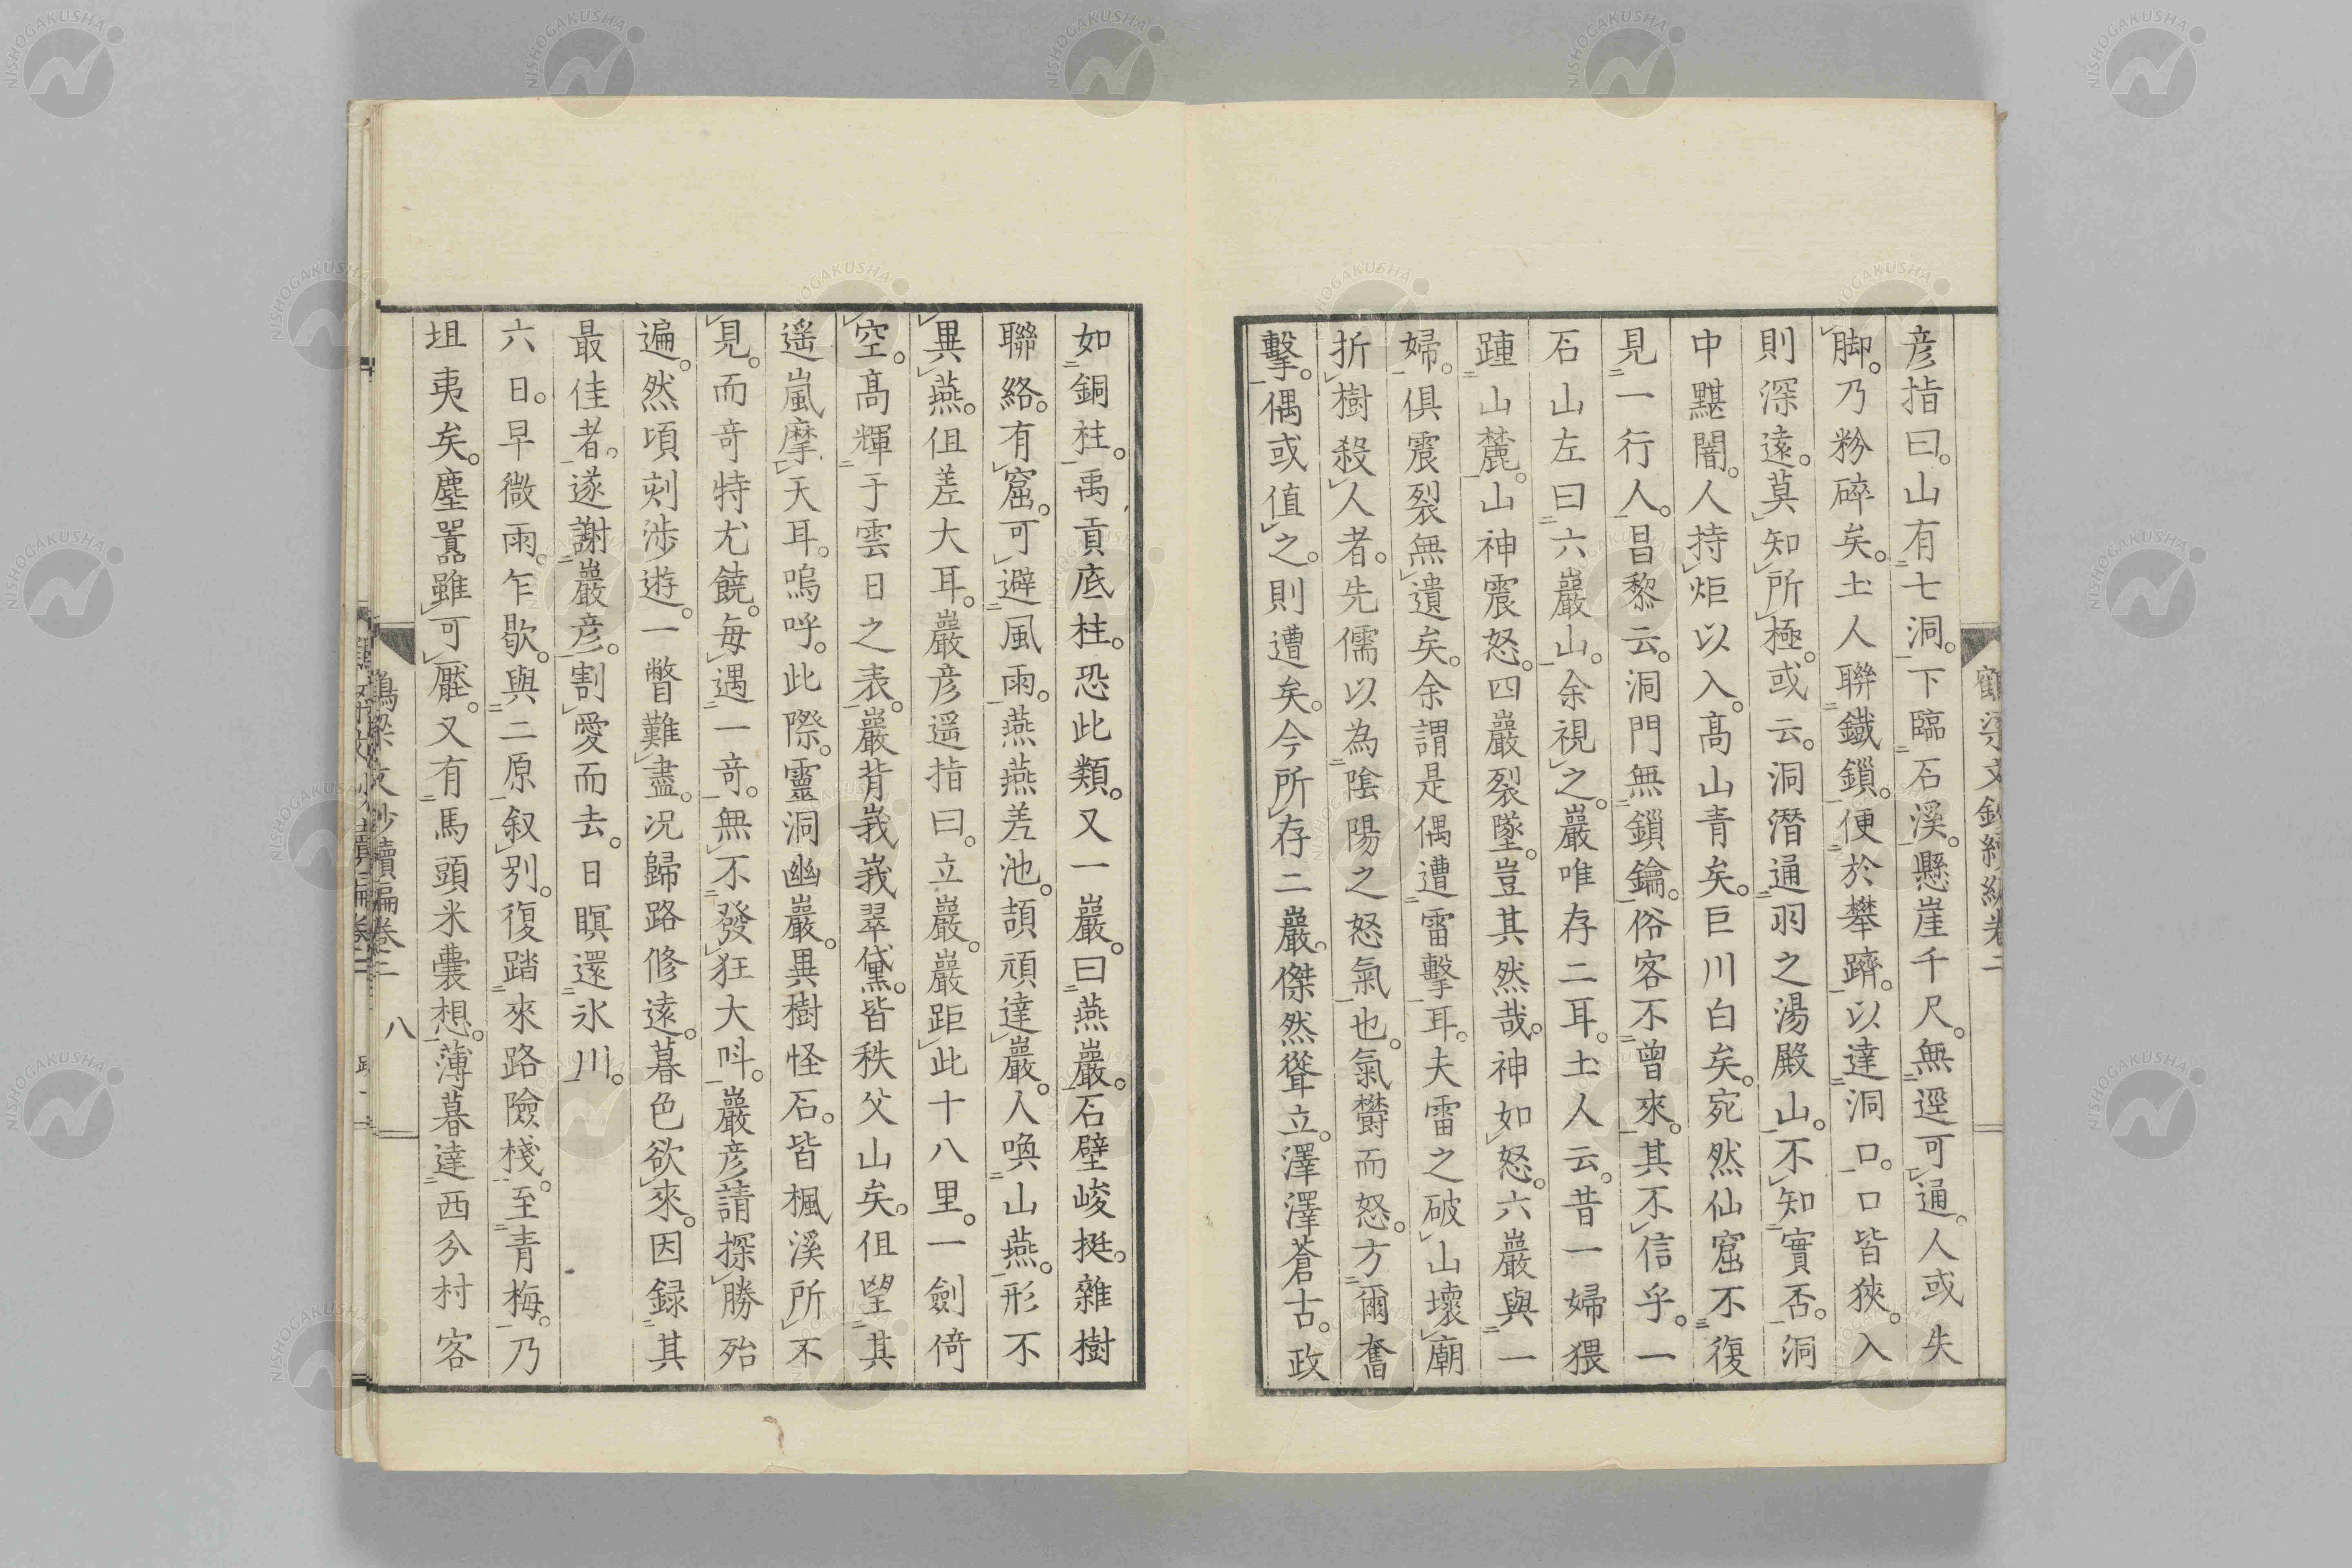 彦指曰。山有七洞。下臨石溪。懸崖千尺。無逕可通。人或失
脚。乃粉碎矣。土人聯鐵鎖。便於攀躋。以達洞口。口皆狹。入
則深遠。莫知所極。或云。洞潛通羽之湯殿山。不知實否。洞
中黮闇。人持炬以入。髙山青矣。巨川白矣。宛然仙窟不復
見一行人。昌黎云。洞門無鎖鑰。俗客不曾來。其不信乎。一
石山左曰六巖山。余視之。巖唯存二耳。土人云。昔一婦猥
踵山麓。山神震怒。四巖裂墜。豈其然哉。神如怒。六巖與一
婦。俱震裂無遺矣。余謂是偶遭雷擊耳。夫雷之破山壞廟
折樹殺人者。先儒以為陰陽之怒氣也。氣欝而怒。方爾奮
擊。偶或值之。則遭矣。今所存二巖。傑然聳立。澤澤蒼古。政
如銅柱。禹貢底柱。恐此類。又一巖。曰燕巖。石壁峻挺。雜樹
聯絡。有窟。可避風雨。燕燕差池。頡頑達巖。人喚山燕。形不
異燕。但差大耳。巖彦遥指曰。立巖。巖距此十八里。一劍倚
空。髙輝于雲日之表。巖背峩峩翠黛。皆秩父山矣。但望其
遥嵐摩天耳。嗚呼。此際。靈洞幽巖。異樹怪石。皆楓溪所不
見。而竒特尤饒。每遇一竒。無不發狂大呌。巖彦請探勝殆
遍。然頃刻渉遊。一瞥難盡。况歸路修遠。暮色欲來。因録其
最佳者。遂謝巖彦。割愛而去。日暝還氷川。
六日。早微雨。乍歇。與二原叙别。復踏來路險棧。至青梅。乃
坦夷矣。塵囂雖可厭。又有馬頭米嚢想。薄暮達西分村客
鶴梁文鈔續編卷二 八